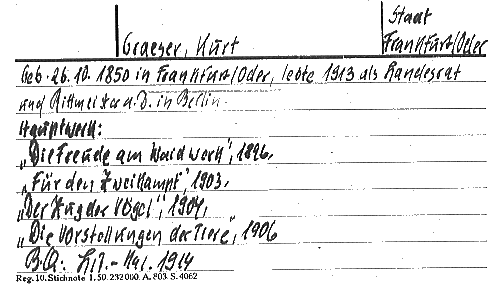 Staat
Graeser, Kurt Frankfurt/Oder
Geb. 26.10.1850 in Frankfurt/Oder, lebte 1913 als Landesrat
und Rittmeister a.D. in Berlin.
Hauptwerk:
„Die Freude am Waidwerk", 1896,
„Für den Zweikampf", 1903,
„Der Zug der Vögel", 1904,
„Die Vorstellungen der Tiere", 1906
B.Q.: Lit.-Kal. 1914
Reg. 10. Stichnote 1. 50. 232000. A. 803 S. 4062